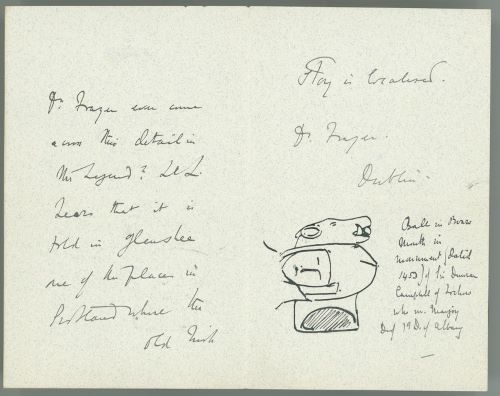 Dr. Frazer ever came
across this detail in
the Legend? Ld L.
hears that it is
told in Glenshee
one of the places in
Scotland where the
old Irish
Story is localised.
Dr. Frazer.
Dublin.
Ball in Boars
Mouth in
monument (dated
1453) of Sir Duncan
Campbell of Lochow
who m. Marjory
of 1st D. of Albany